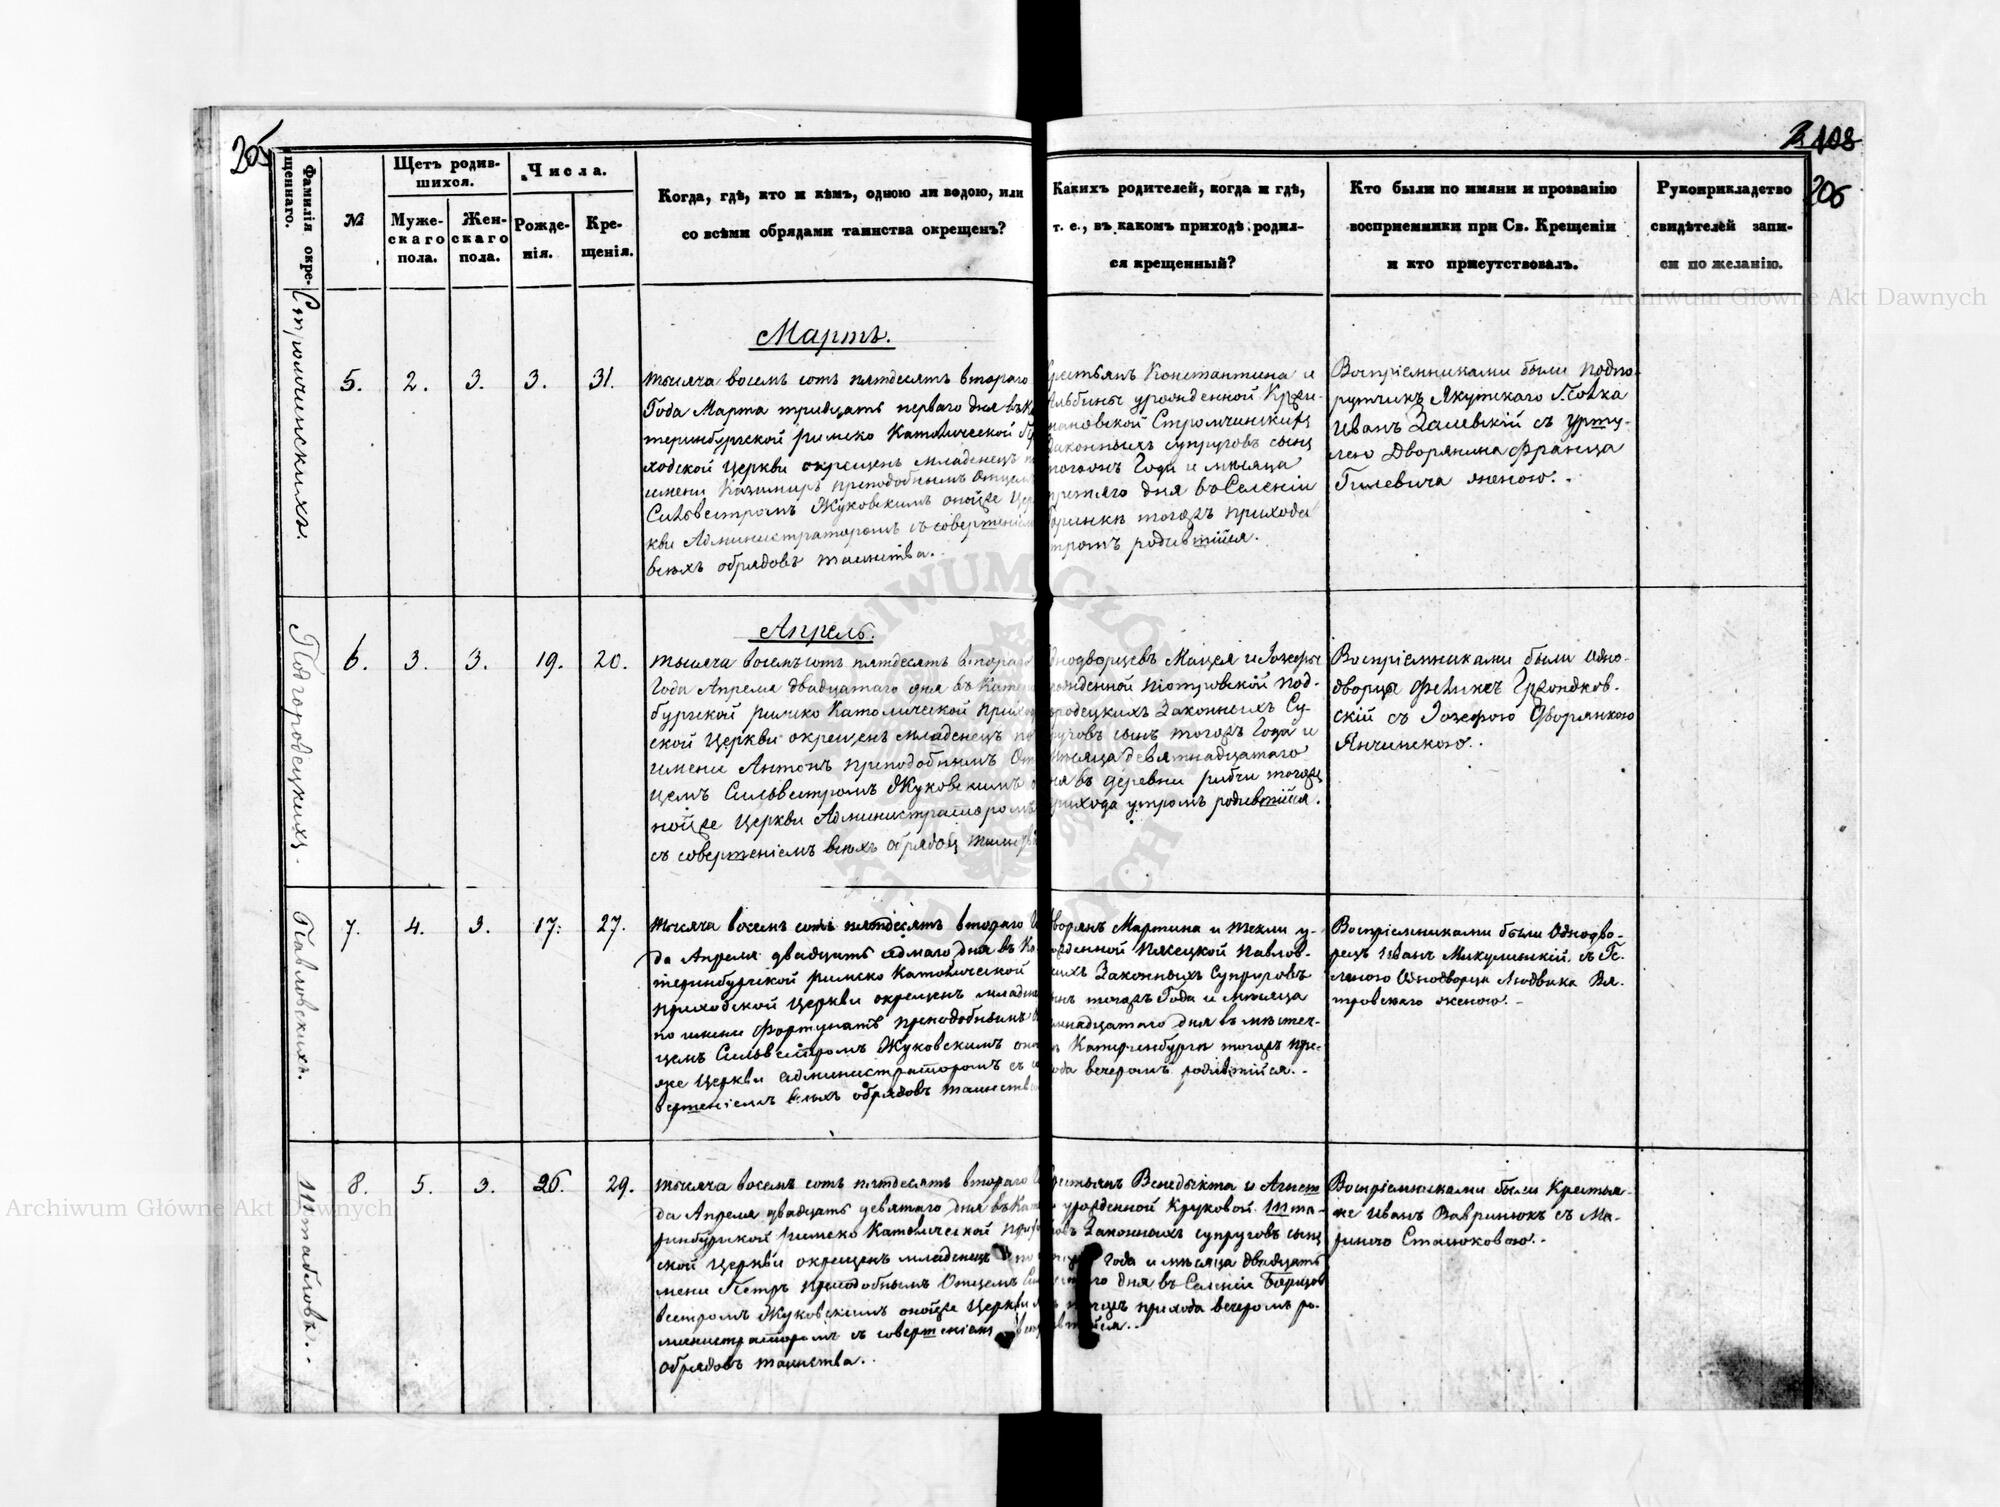 205
2 108
206
Фамилія окре-
щеннаго.
№
Щетъ родив-
шихся.
Муже-
скаго
пола.
Жен-
скаго
пола.
Числа.
Рожде-
нія.
Кре-
щенія.
Когда, гдѣ, кто и кѣмъ, одною ли водою, или
со всѣми обрядами таинства окрещенъ?
Какихъ родителей, когда и гдѣ,
т. е., въ какомъ приходѣ родил-
ся крещенный?
Кто были по имяни и прозванію
восприемники при Св. Крещеніи
и кто присутствовалъ.
Рукоприкладство
свидѣтелей запи-
си по желанію.
Archiwum Główne Akt Dawnych
Мартъ.
Стромчинскихъ.
5. 2. 3. 3. 31.
тысяча восемъ сотъ пятдесятъ втораго
Года Марта тридцать перваго дня въ
теринбургской римско Католической
ходской Церкви окрещенъ младенецъ
имени Казимиръ преподобнымъ Отцемъ
Сильвестромъ Жуковскимъ онойже
кви Администраторомъ съ совершеніем
всѣхъ обрядовъ таинства.
Константина и
Альбины урожденной
Стромчинскихъ
законныхъ супруговъ сынъ
Года и мѣсяца
третяго дня въ Селеніи
тогожъ прихода
родившійся.
Воспріемниками были подпо-
ручикъ Якутского Полка
Иванъ Залевскій съ
Дворянина Франца
Гилевича женою.
Апрель.
Подгородецкихъ.
6. 3. 3. 19. 20.
тысяча восемъ сотъ пятдесятъ втораго
Года Апреля двадцатаго дня въ
бургской римско Католической
ской Церкви окрещенъ младенецъ по
имени Антонъ преподобнымъ От
цемъ Сильвестромъ Жуковскимъ о
нойже Церкви Администраторомъ
съ совершеніемъ всѣхъ обрядовъ
однодворцевъ Мацея и Іозефы
рожденной Піотровской Под-
городецкихъ Законныхъ Су-
пруговъ сынъ тогожъ Года и
мѣсяца девятнадцатаго
дня въ деревни рибчи тогожъ
прихода утромъ родившійся.
Воспріемниками были Одно-
дворцы Феликсъ Гржондков-
скій съ Іозефою Дворянкою
Янчинскою.
Павловскихъ.
7. 4. 3. 17. 27.
тысяча восемъ сотъ пятдесятъ втораго
да Апреля двадцать
теринбургской римско Католической
приходской Церкви окрещенъ
по имени Фортунатъ преподобнымъ
цемъ Сильвестромъ Жуковскимъ оной
же Церкви администраторомъ съ
вершеніемъ всѣхъ обрядовъ таинства
Дворянъ Мартина и Текли у-
рожденной Пясецкой Павлов-
скихъ Законныхъ Супруговъ
тогожъ Года и мѣсяца
дня въ мѣстеч-
Катеринбургъ тогожъ при-
хода вечеромъ родившійся.
Воспріемниками были Однодво-
рецъ Иванъ Микулинскій съ
Однодворца Людвика
женою.
Штабловъ.
8. 5. 3. 26. 29.
тысяча восемъ сотъ пятдесятъ втораго
да Апреля двадцать девятаго дня въ
ринбургской римско Католической
ской Церкви окрещенъ младенецъ по
мени Петръ преподобнымъ Отцемъ
вестромъ Жуковскимъ онойже Церкви
министраторомъ съ совершеніемъ
обрядовъ таинства.
Венедыкта и
урожденной Круковой
Законныхъ супруговъ сынъ
Года и мѣсяца двадцать
дня въ Селеніи
тогожъ прихода вечеромъ ро-
Воспріемниками были Крестья-
не Иванъ Вавринюкъ съ Ма-
риною Стасюковою.
Archiwum Główne Akt Dawnych
Archiwum Główne Akt Dawnych